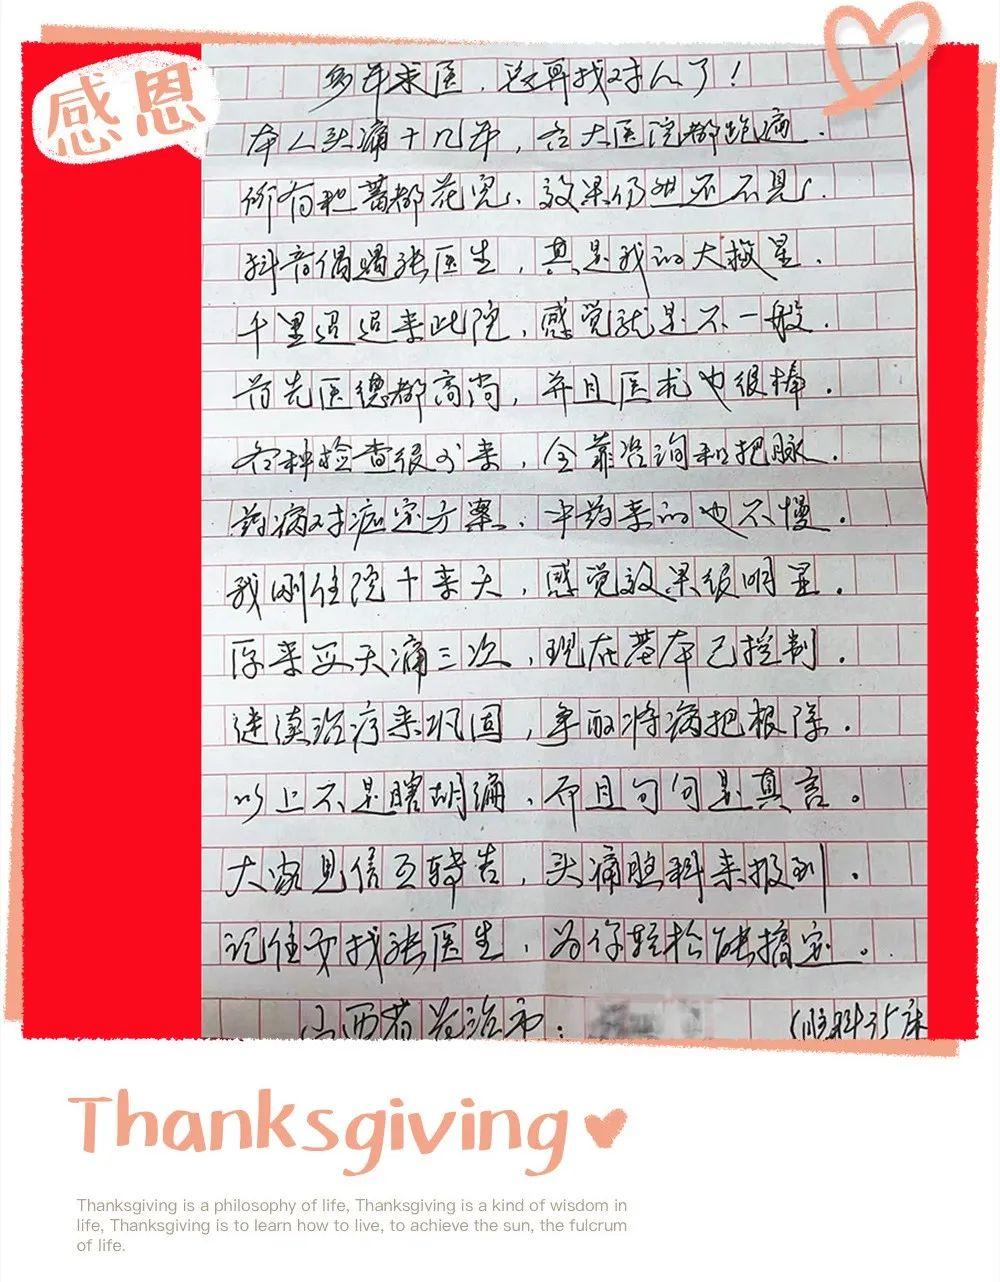 感恩
多年求医，总算找对人了！
本人头痛十几年，各大医院都跑遍．
所有积蓄都花完、效果仍然还不见．
抖音偶遇张医生，真是我的大救星．
千里迢迢来此院，感觉就是不一般．
首先医德都高尚，并且医术也很棒．
各种检查很少来，全靠咨询和把脉．
药病对症定方案、中药来的也不慢．
我刚住院十来天，感觉效果很明显．
原来每天痛三次，现在基本已控制．
继续治疗来巩固，争取将病把根除．
以上不是瞎胡编，而且句句是真言。
大家见信互转告，头痛脑科来报到．
记住要找张医生，为你轻松能搞定。
山西省长治市：
（脑科35床
Thanksgiving
Thanksgiving is a philosophy of life, Thanksgiving is a kind of wisdom in
life, Thanksgiving is to learn how to live, to achieve the sun, the fulcrum
of life.